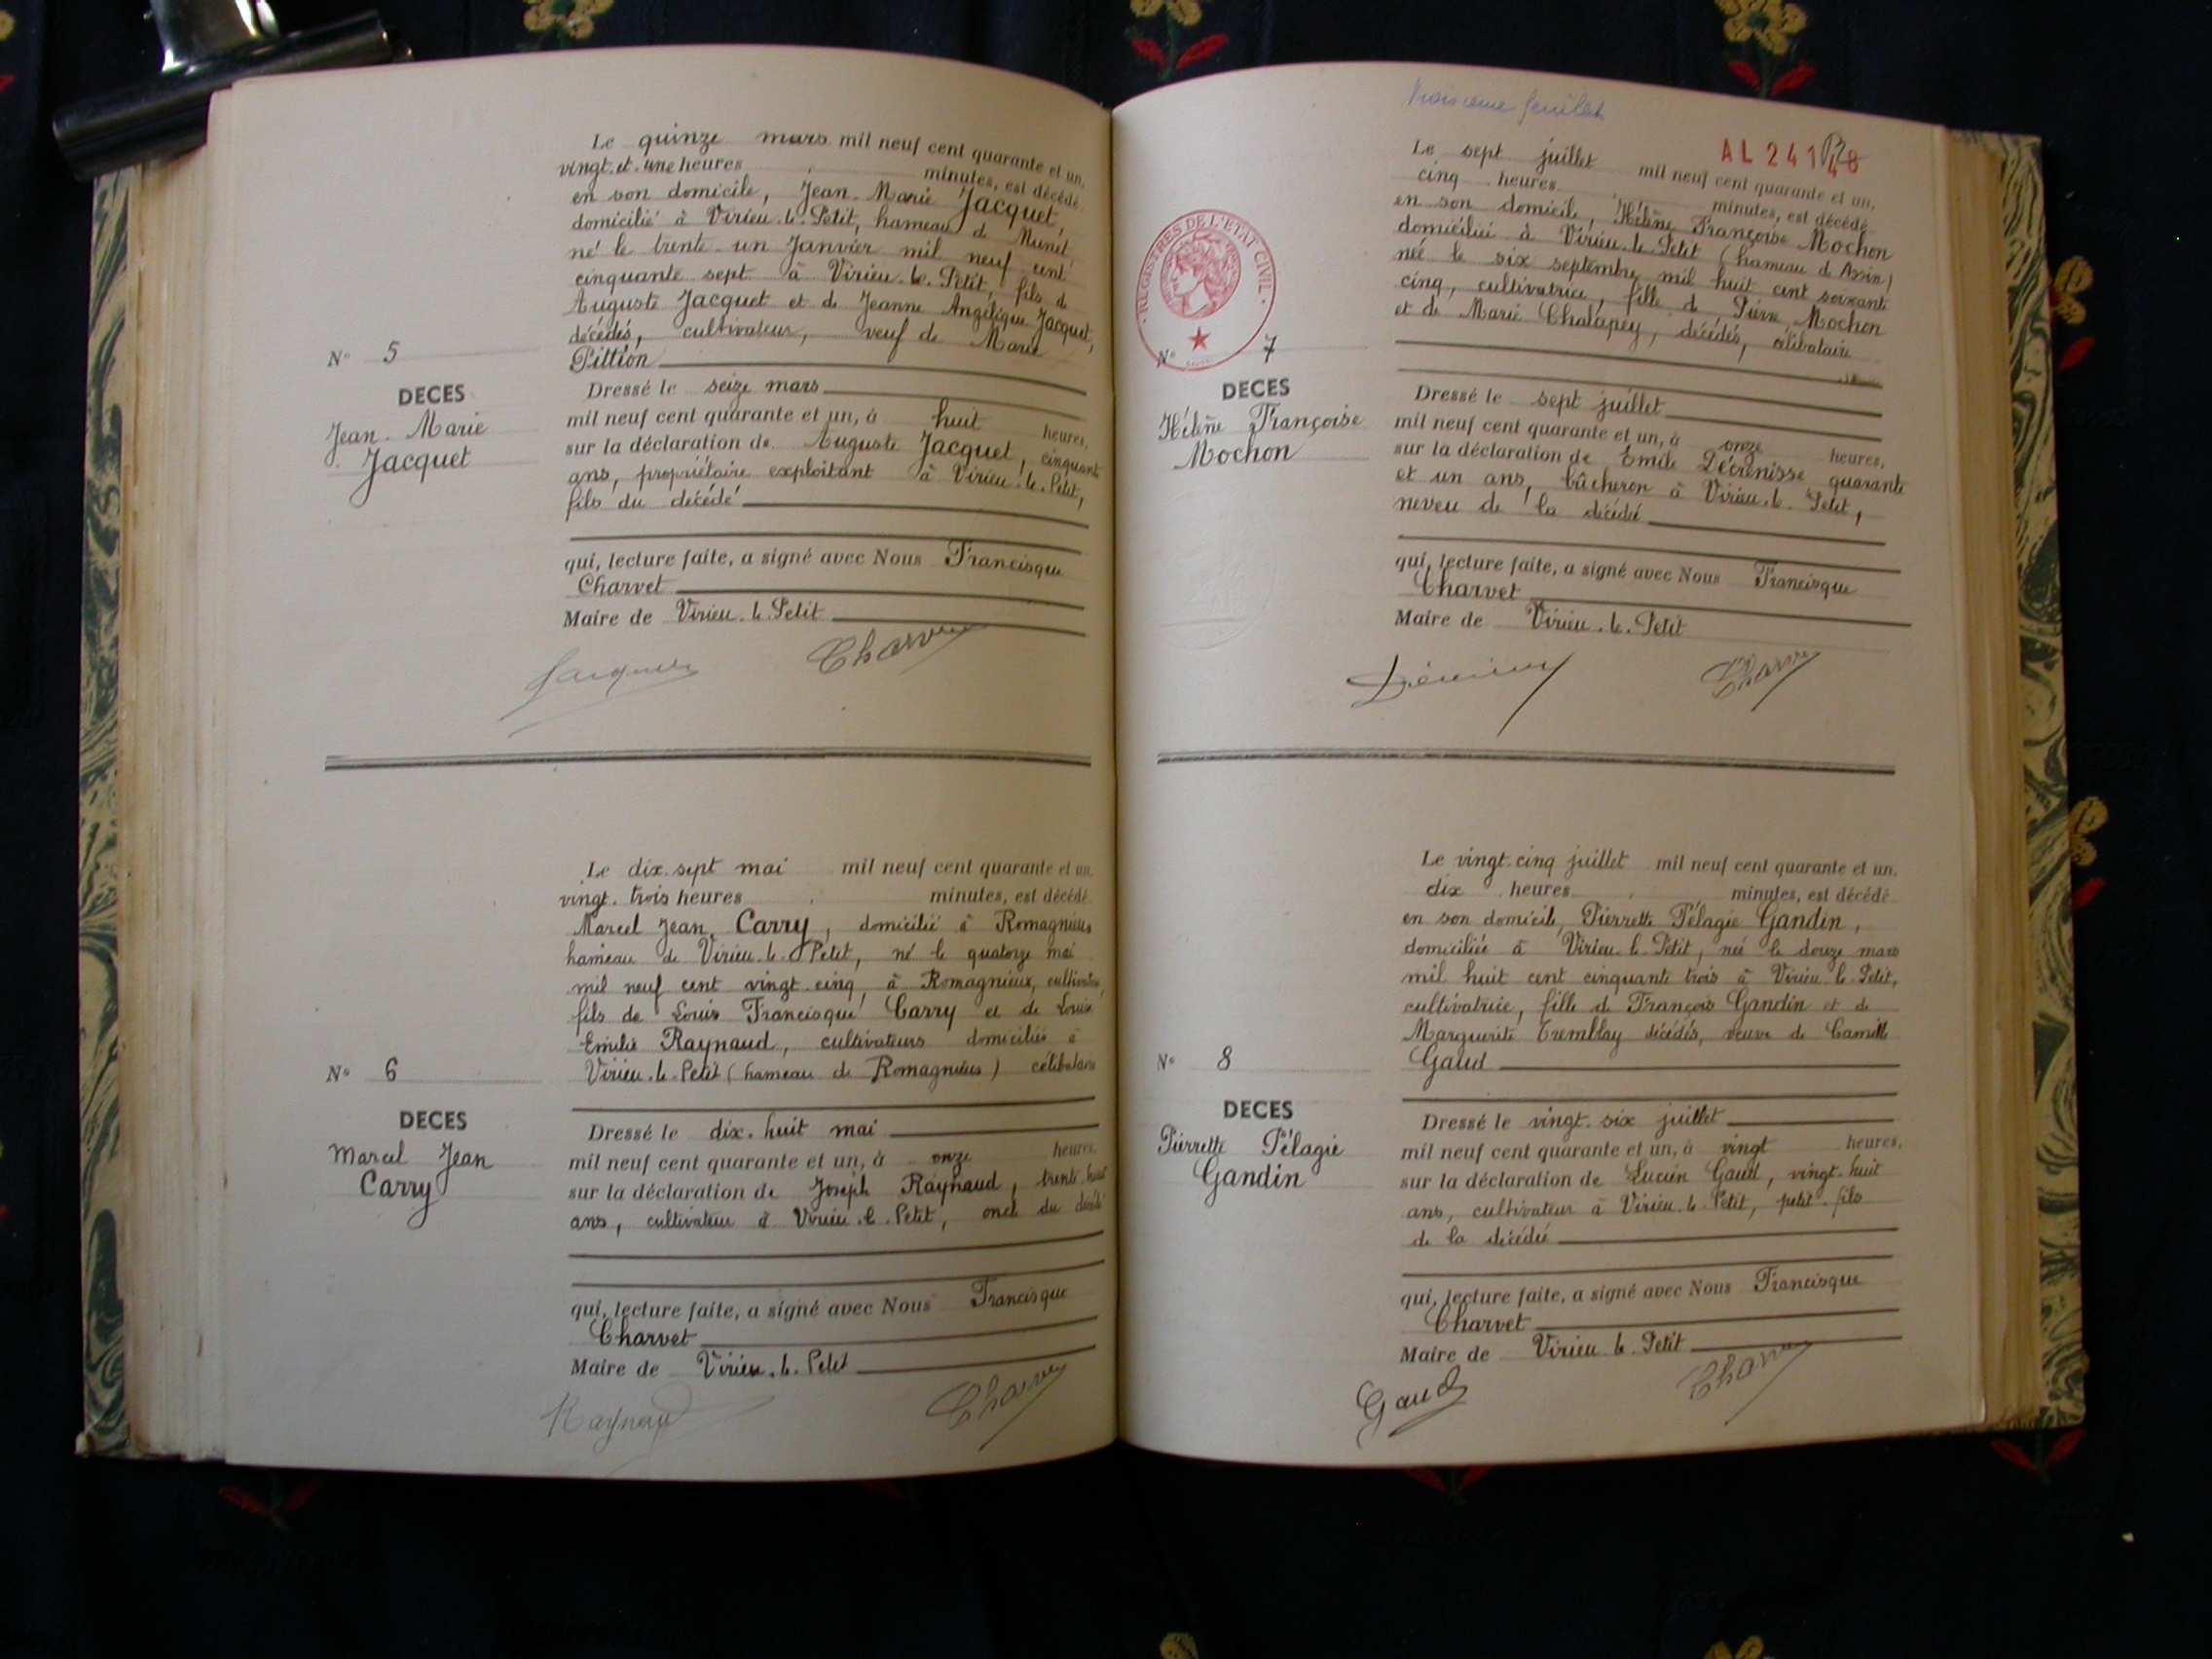 Le quinze mars mil neuf cent quarante et un,
vingt et une heures minutes, est décédé
en son domicile, Jean-Marie Jacquet,
domicilié à Virieu-le-Petit, hameau de Munet,
né le trente-un Janvier mil neuf cent
cinquante sept à Virieu-le-Petit, fils de
Auguste Jacquet et de Jeanne Angélique Jacquet,
décédés, cultivateur, veuf de Marie
Pittion
N° 5
DECES
Jean-Marie
Jacquet
Dressé le seize mars
mil neuf cent quarante et un, à huit heures,
sur la déclaration de Auguste Jacquet, cinquante
ans, propriétaire exploitant à Virieu-le-Petit,
fils du décédé
qui, lecture faite, a signé avec Nous Francisque
Charvet
Maire de Virieu-le-Petit
Charvet
Le dix-sept mai mil neuf cent quarante et un,
vingt-trois heures minutes, est décédé
Marcel Jean Carry, domicilié à Romagnieu
hameau de Virieu-le-Petit, né le quatorze mai
mil neuf cent vingt-cinq, à Romagnieux, cultivateur,
fils de Louis Francisque Carry et de Louise
Emilie Raynaud, cultivateurs domiciliés à
Virieu-le-Petit (hameau de Romagnieu) célibataire
N° 6
DECES
Marcel Jean
Carry
Dressé le dix-huit mai
mil neuf cent quarante et un, à onze heures,
sur la déclaration de Joseph Raynaud, trente-huit
ans, cultivateur à Virieu-le-Petit, oncle du décédé
qui, lecture faite, a signé avec Nous Francisque
Charvet
Maire de Virieu-le-Petit
Raynaud Charvet
Troisième feuillet
AL 241
REGISTRES DE L'ETAT CIVIL
Le sept juillet mil neuf cent quarante et un,
cinq heures minutes, est décédé
en son domicile, Hélène Françoise Mochon
domiciliée à Virieu-le-Petit (hameau d'Assin)
née le six septembre mil huit cent soixante
cinq, cultivatrice, fille de Pierre Mochon
et de Marie Chalapey, décédés, célibataire
N° 7
DECES
Hélène Françoise
Mochon
Dressé le sept juillet
mil neuf cent quarante et un, à onze heures,
sur la déclaration de Emile Décrenisse, quarante
et un ans, bûcheron à Virieu-le-Petit,
neveu de la décédée
qui, lecture faite, a signé avec Nous Francisque
Charvet
Maire de Virieu-le-Petit
Charvet
Le vingt-cinq juillet mil neuf cent quarante et un,
dix heures minutes, est décédé
en son domicile, Pierrette Pélagie Gandin,
domiciliée à Virieu-le-Petit, née le douze mars
mil huit cent cinquante trois à Virieu-le-Petit,
cultivatrice, fille de François Gandin et de
Marguerite Tremblay décédés, veuve de Camille
Gaud
N° 8
DECES
Pierrette Pélagie
Gandin
Dressé le vingt-six juillet
mil neuf cent quarante et un, à vingt heures,
sur la déclaration de Lucien Gaud, vingt-huit
ans, cultivateur à Virieu-le-Petit, petit-fils
de la décédée
qui, lecture faite, a signé avec Nous Francisque
Charvet
Maire de Virieu-le-Petit
Gaud Charvet